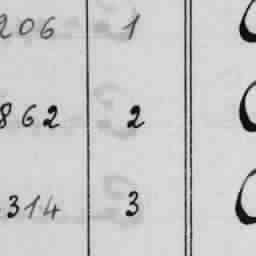 206 1
862 2
314 3